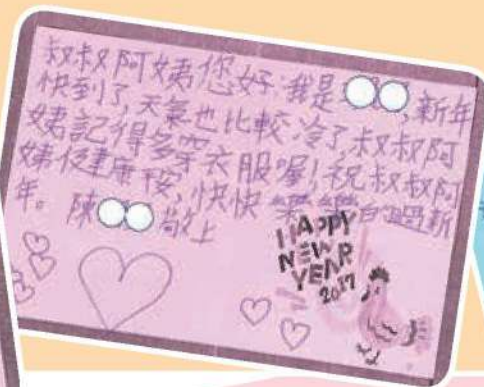 叔叔阿姨您好:我是○○,新年
快到了,天氣也比較冷了,叔叔阿
姨記得多穿衣服喔!祝叔叔阿
姨健康平安,快快樂樂的過新
年。 陳○○敬上
HAPPY
NEW
YEAR
2017